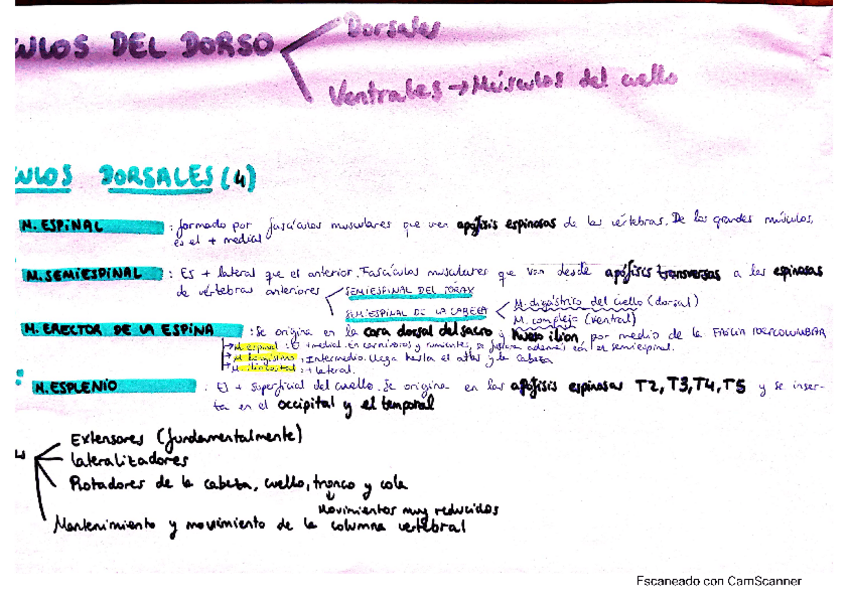 ULOS DEL DORSO
Dorsales
Ventrales → Músculos del cuello
ULOS DORSALES (4)
M. ESPINAL : formado por fascículos musculares que unen apófisis espinosas de las vértebras. De los grandes músculos,
es el + medial
M. SEMIESPINAL : Es + lateral que el anterior. Fascículos musculares que van desde apófisis transversas a las espinosas
de vértebras anteriores
SEMIESPINAL DEL TÓRAX
SEMIESPINAL DE LA CABEZA
M. digástrico del cuello (dorsal)
M. complejo (ventral)
M. ERECTOR DE LA ESPINA : Se origina en la cara dorsal del sacro y hueso ilion, por medio de la FASCIA TORACOLUMBAR
→ M. espinal : El + medial. En carnívoros y rumiantes, se fusiona además con el semiespinal.
→ M. longísimo : Intermedio. Llega hasta el atlas y la cabeza
→ M. iliocostal : + lateral.
M. ESPLENIO : Es + superficial del cuello. Se origina en las apófisis espinosas T2, T3, T4, T5 y se inser-
ta en el occipital y el temporal
Extensores (fundamentalmente)
lateralizadores
Rotadores de la cabeza, cuello, tronco y cola
Movimientos muy reducidos
Mantenimiento y movimiento de la columna vertebral
Escaneado con CamScanner